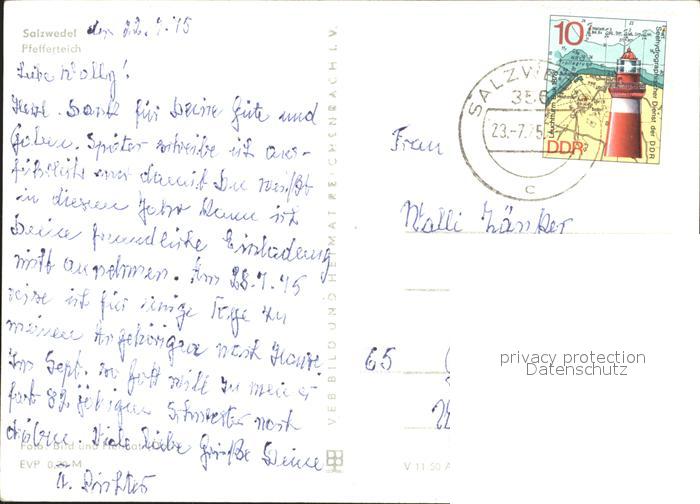 Salzwedel den 22.7.75
Pfefferteich
Liebe Wally!
Herzl. Dank für Deine Güte und
Gaben. Später schreibe ich aus-
führlich nur damit Du weißt
in diesem Jahr kann ich
Deine freundliche Einladung
nicht annehmen. Am 28.7.75
reise ich für einige Tage zu
meinen Angehörigen nach
Im Sept. so Gott will zu meiner
fast 89. jährigen Schwester nach
Viele liebe Grüße Deine
Foto: Bild und Heimat
EVP 0,20 M
VEB BILD UND HEIMAT REICHENBACH I. V.
10
DDR
Seehydrographischer Dienst der DDR
Leuchtturm
SALZWEDEL
356
23.-7.75
c
Frau
Walli
65
privacy protection
Datenschutz
V 11 50 A